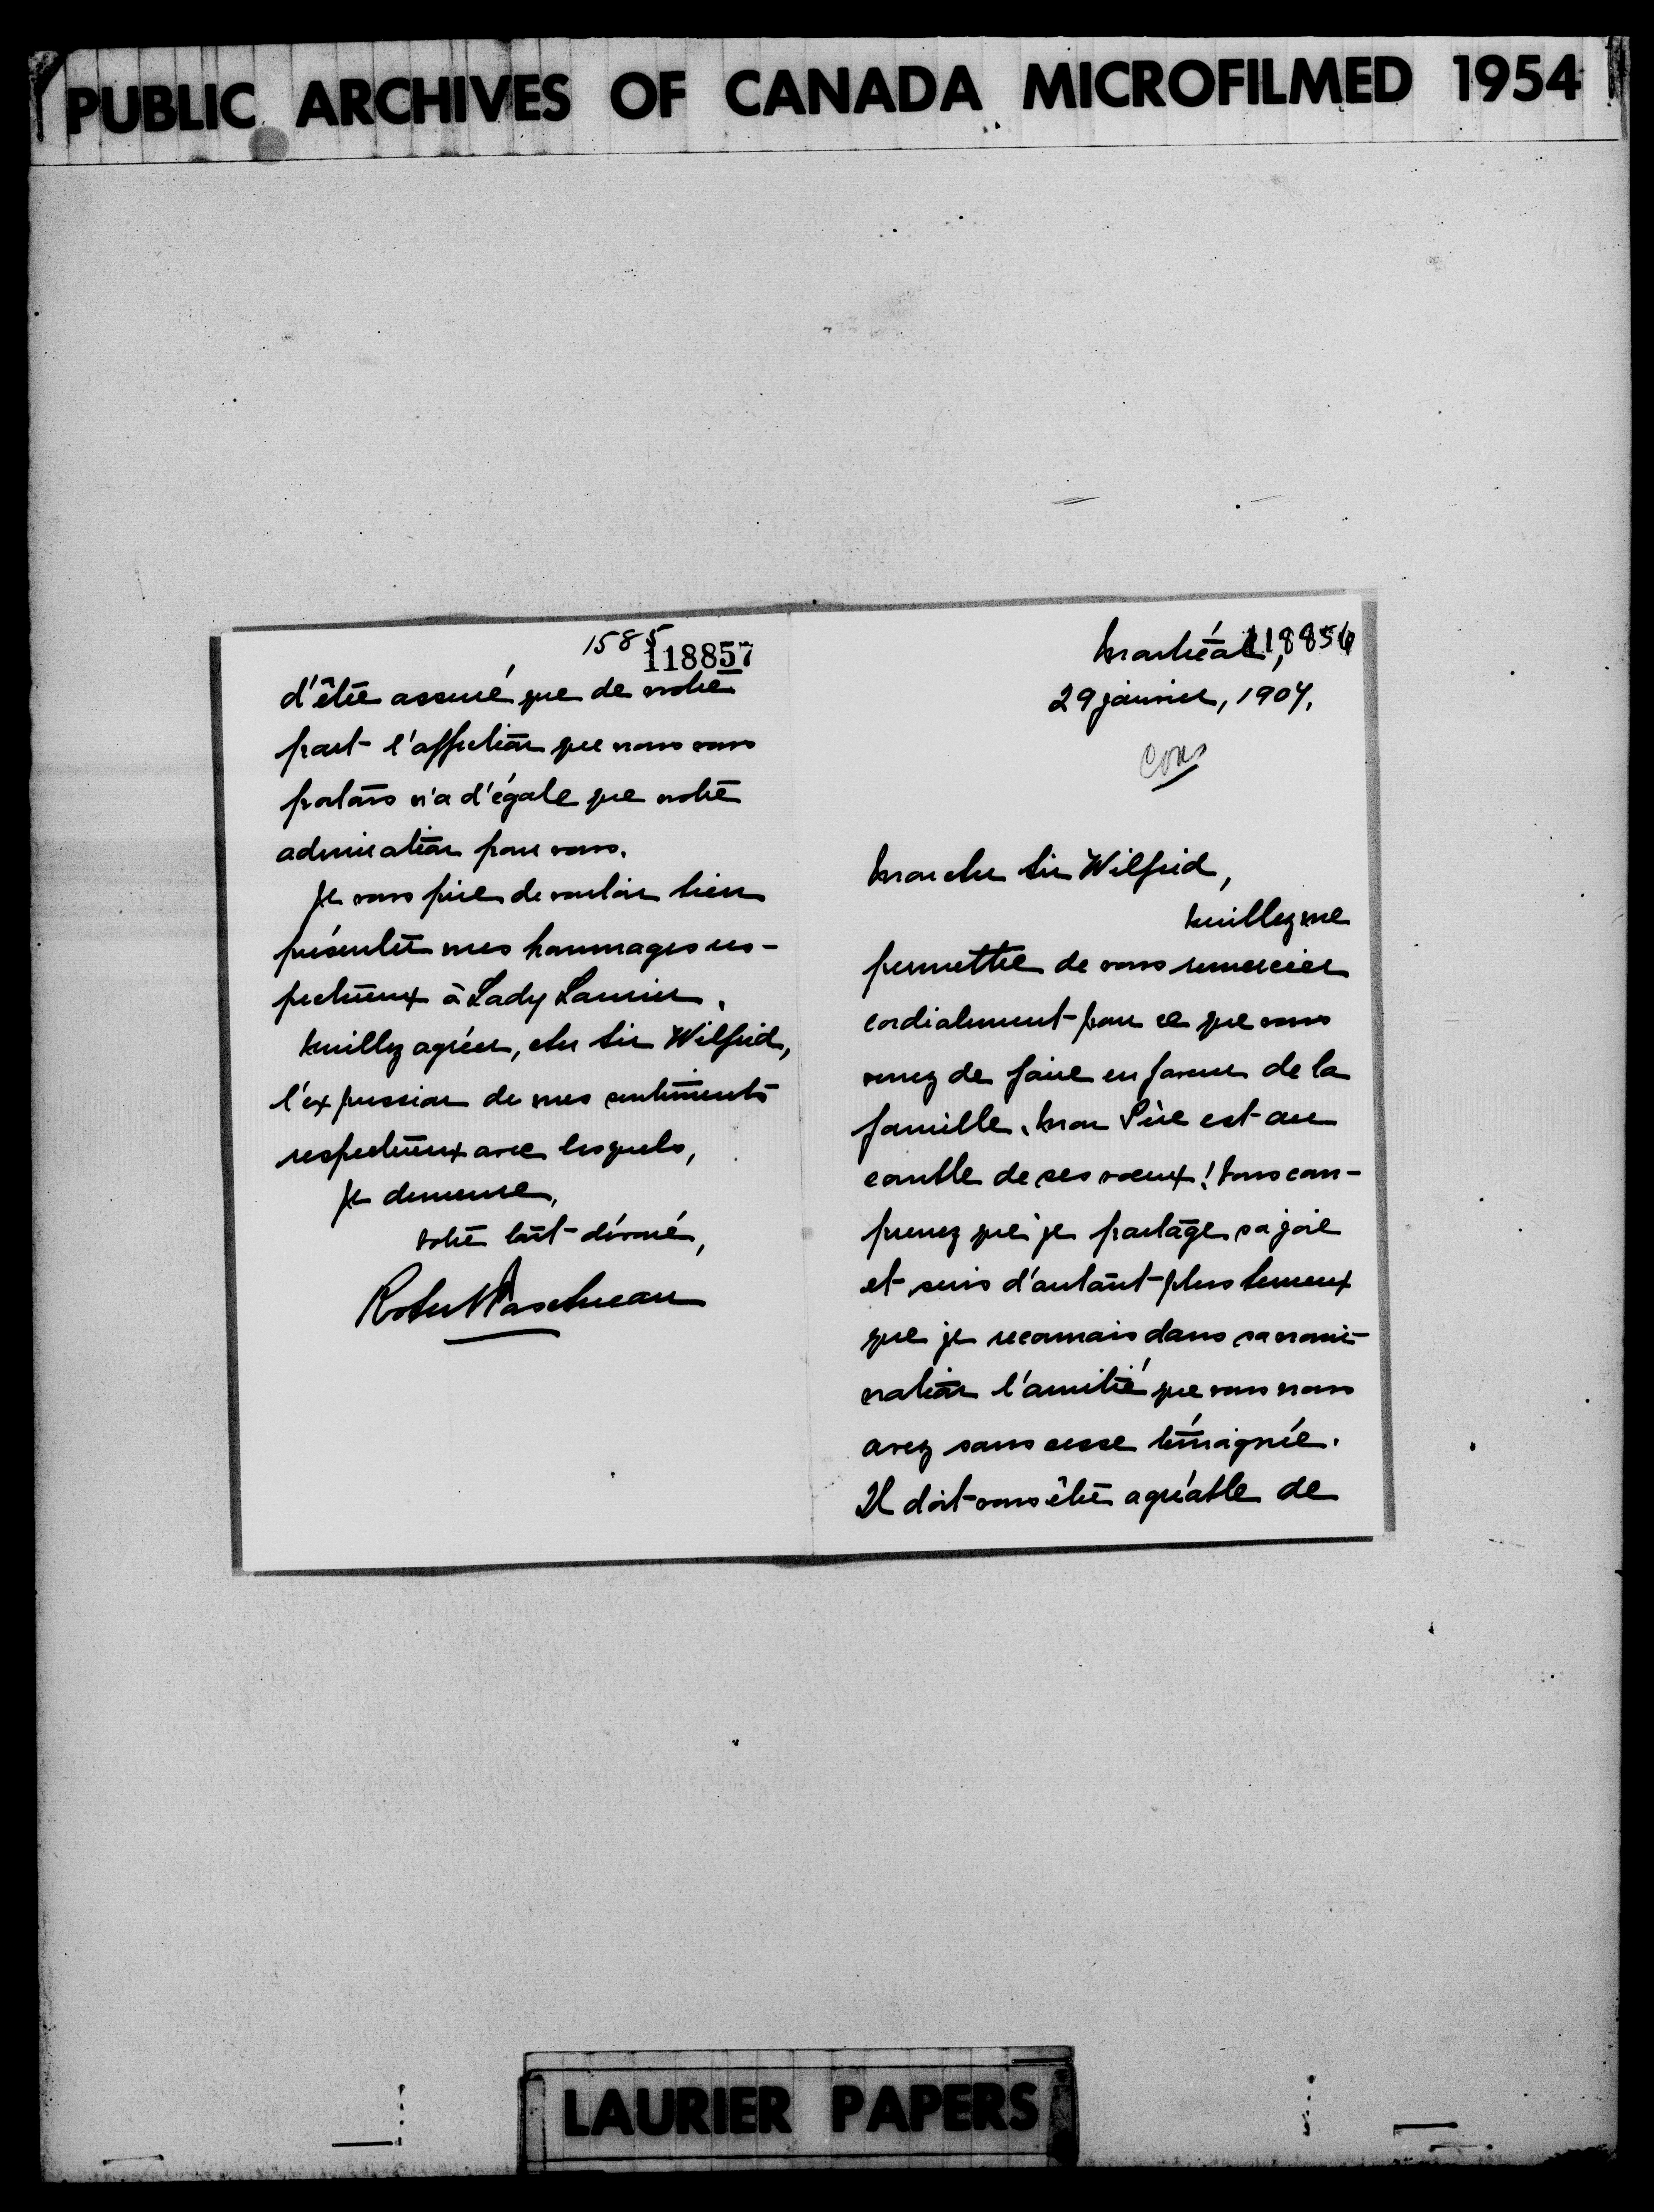 PUBLIC ARCHIVES OF CANADA MICROFILMED 1954
118856
Montréal,
29 janvier, 1907.
Cons
Mon cher Sir Wilfrid,
Veuillez me
permettre de vous remercier
cordialement pour ce que vous
venez de faire en faveur de la
famille. Mon Père est au
comble de ses voeux! Vous com-
prenez que je partage sa joie
et suis d'autant plus heureux
que je reconnais dans sa nomi-
nation l'amitié que vous nous
avez sans cesse témoignée.
Il doit vous être agréable de
1585
118857
d'être assuré que de notre
part l'affection que nous vous
portons n'a d'égale que notre
admiration pour vous.
Je vous prie de vouloir bien
présenter mes hommages res-
pectueux à Lady Laurier.
Veuillez agréer, cher Sir Wilfrid,
l'expression de mes sentiments
respectueux avec lesquels,
Je demeure,
Votre tout dévoué,
Robert Taschereau
LAURIER PAPERS